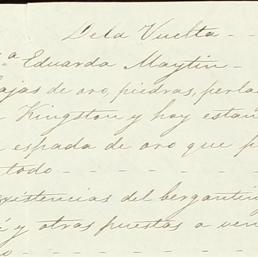 De la Vuelta - -
ª Eduarda Maytin - -
ajas de oro, piedras, perla
Kingston y hoy están
espada de oro que p
todo - - - - -
existencias del bergantin
y otras puestas a ven
- - - - - -